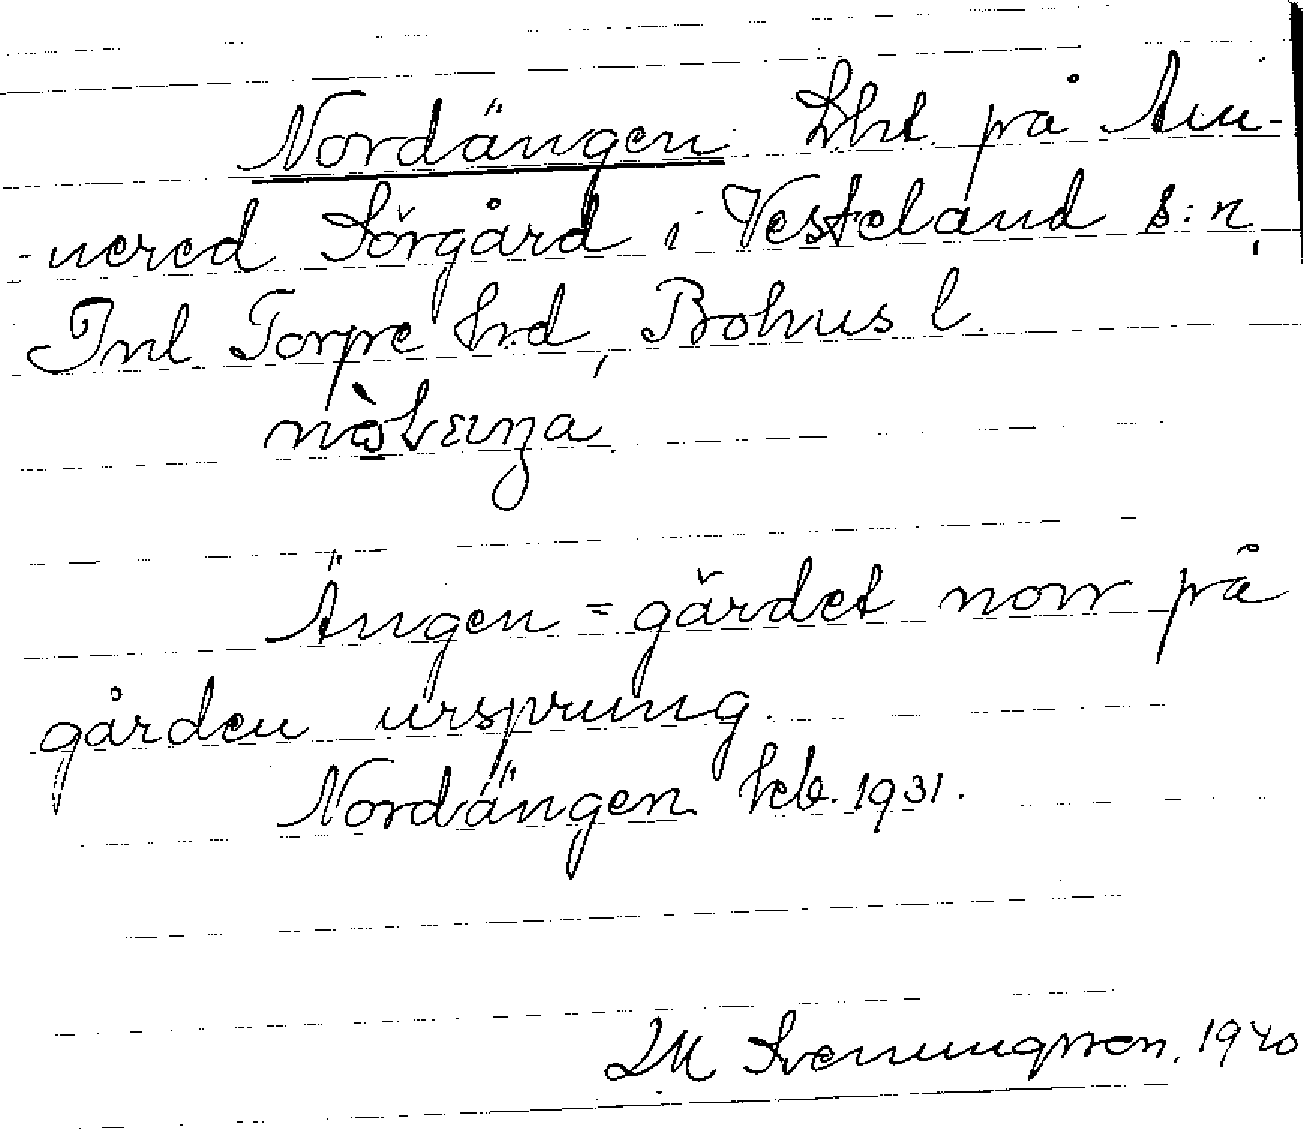 Nordängen. Lht. på Am-
-nered Sörgård i Vesteland s:n,
Inl Torpe hrd, Bohus l.
Ängen = gärdet norr på
gården ursprung.
Nordängen heb. 1931.
LM Svenungsson. 1940